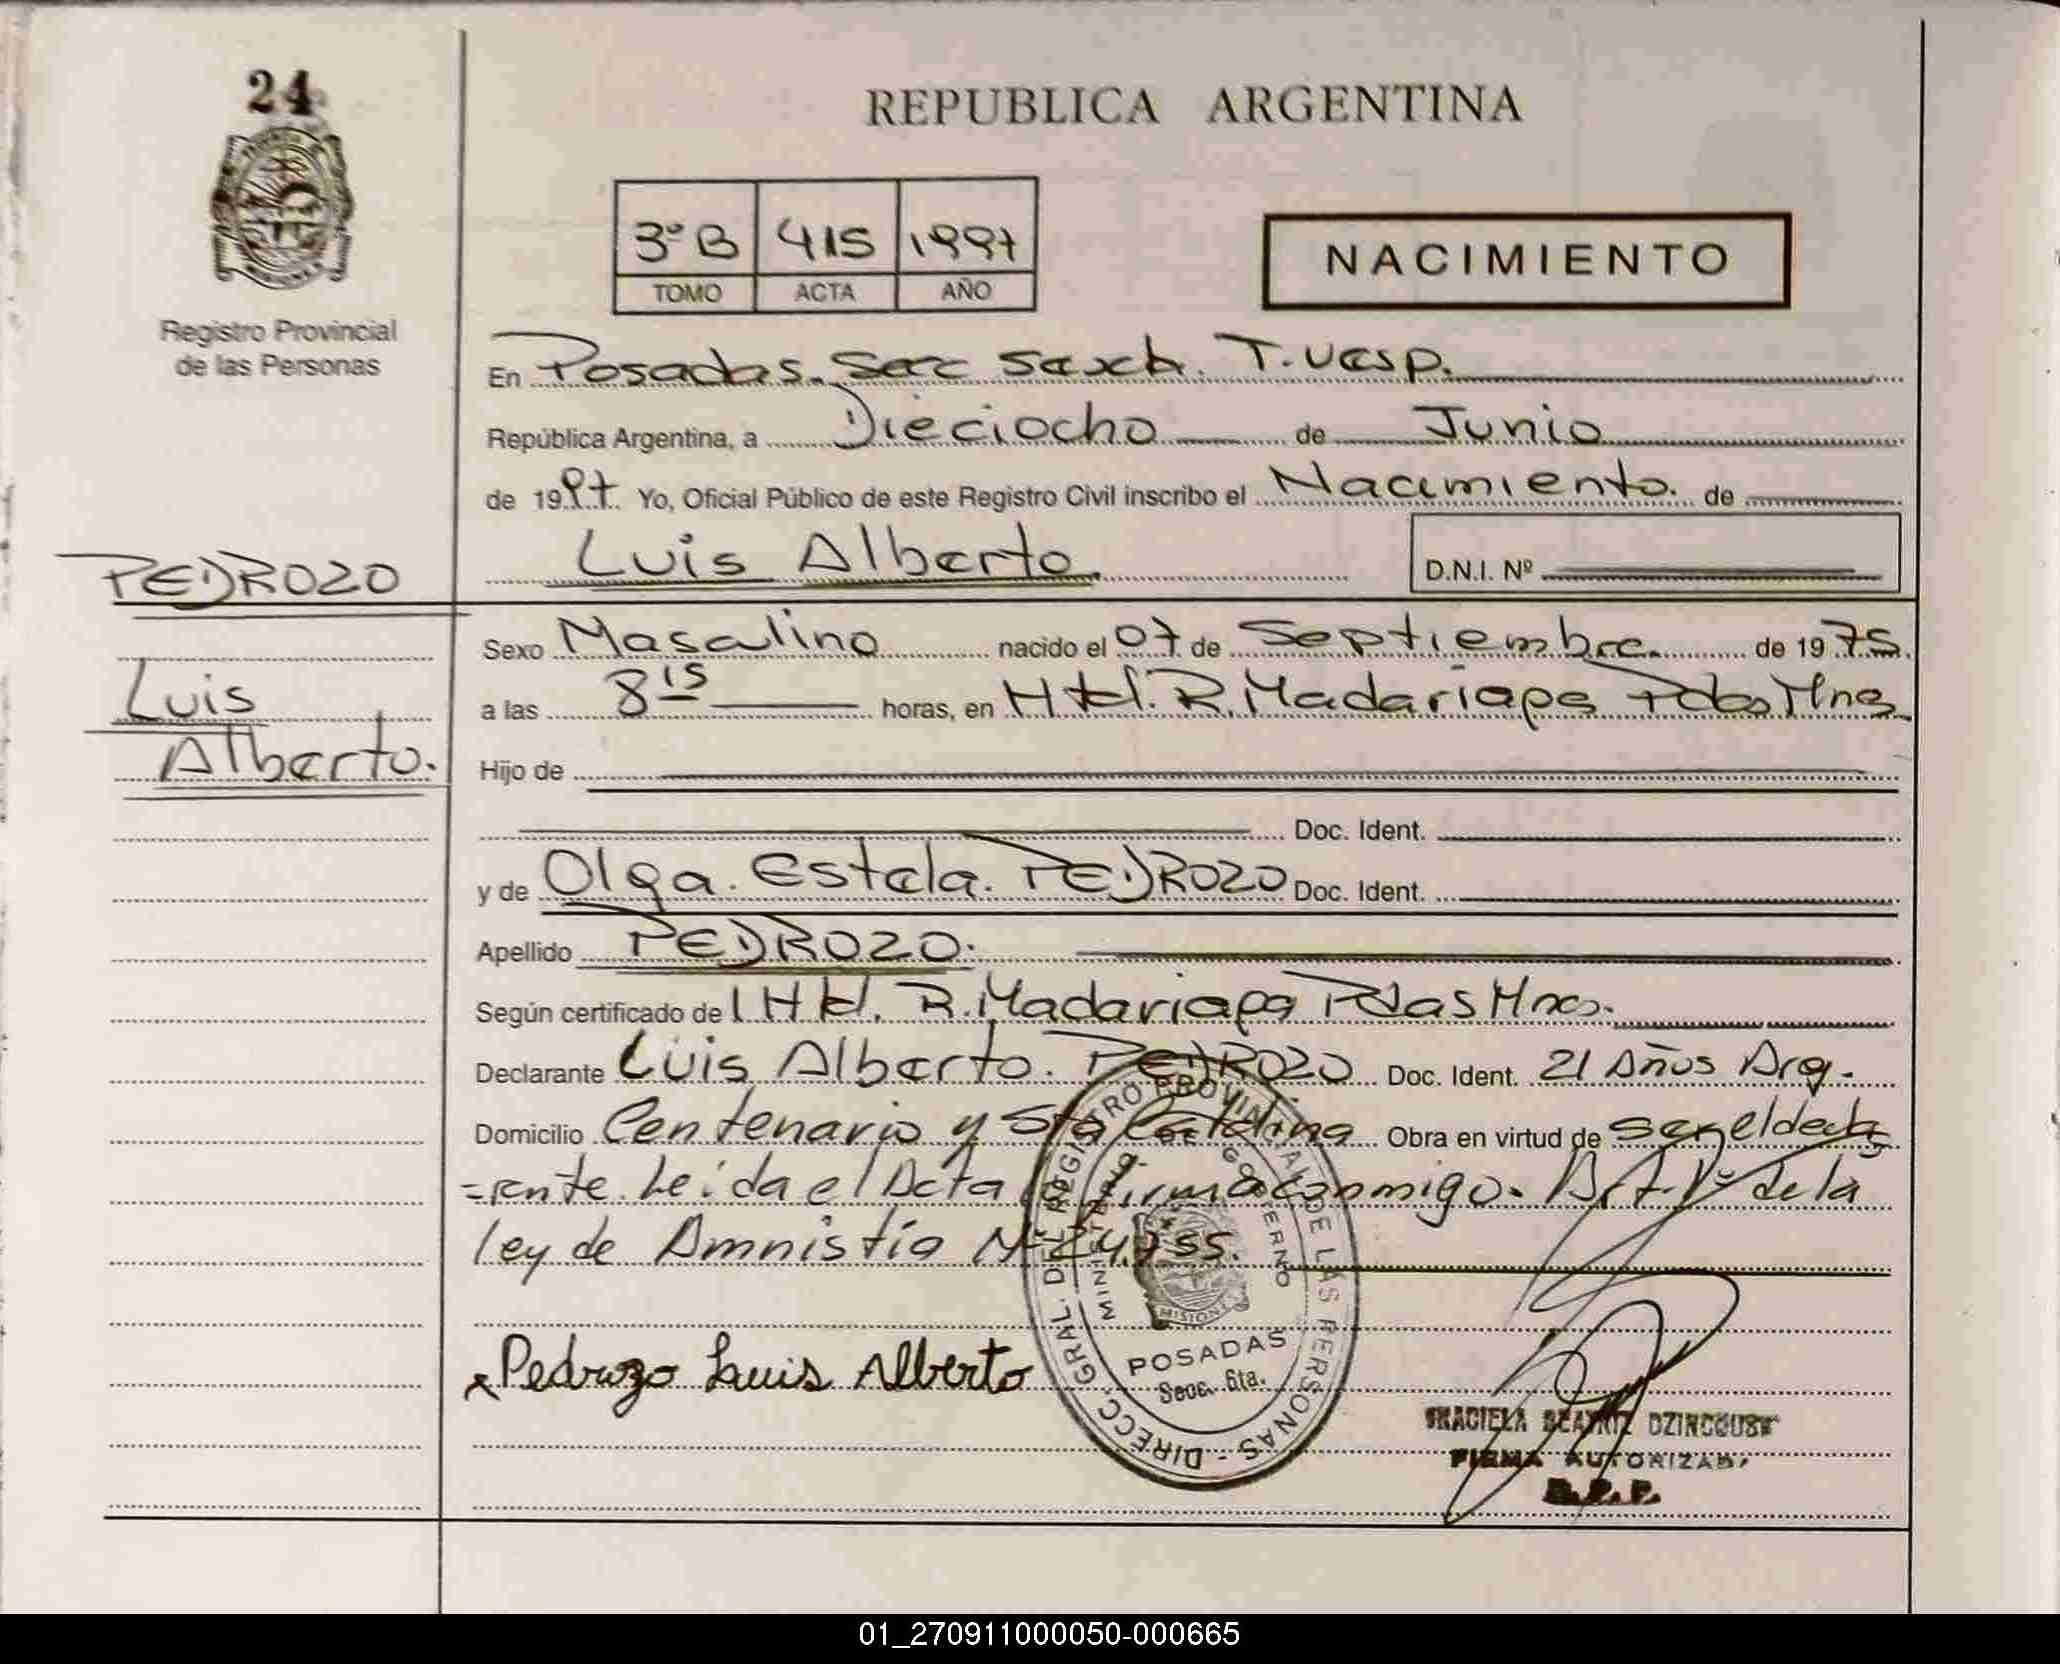 24
REPUBLICA ARGENTINA
3º B 415 1997
TOMO ACTA AÑO
NACIMIENTO
Registro Provincial
de las Personas
En Posadas. Secc Sexta. T. Vesp.
República Argentina, a Dieciocho de Junio
de 1997. Yo, Oficial Público de este Registro Civil inscribo el Nacimiento. de
Luis Alberto. D.N.I. Nº
PEDROZO
Luis
Alberto.
Sexo Masculino nacido el 07 de Septiembre. de 1975.
a las 8 15 horas, en Htal. R. Madariaga Pdas Mnes.
Hijo de
Doc. Ident.
y de Olga. Estela. PEDROZO Doc. Ident.
Apellido PEDROZO.
Según certificado de l Htal. R. Madariaga Pdas Mnes.
Declarante Luis Alberto. PEDROZO Doc. Ident. 21 Años Arg.
Domicilio Centenario y Sta Catalina Obra en virtud de ser el decla
=rante. Leída el Acta firma conmigo. Art. 1º de la
ley de Amnistía Nº 24.755.
x Pedrozo Luis Alberto
DIRECC. GRAL. DEL REGISTRO PROVINCIAL DE LAS PERSONAS
MINISTERIO DE GOBIERNO
MISIONES
POSADAS
Secc. 6ta.
GRACIELA BEATRIZ
FIRMA AUTORIZADA
R.P.P.
01_270911000050-000665